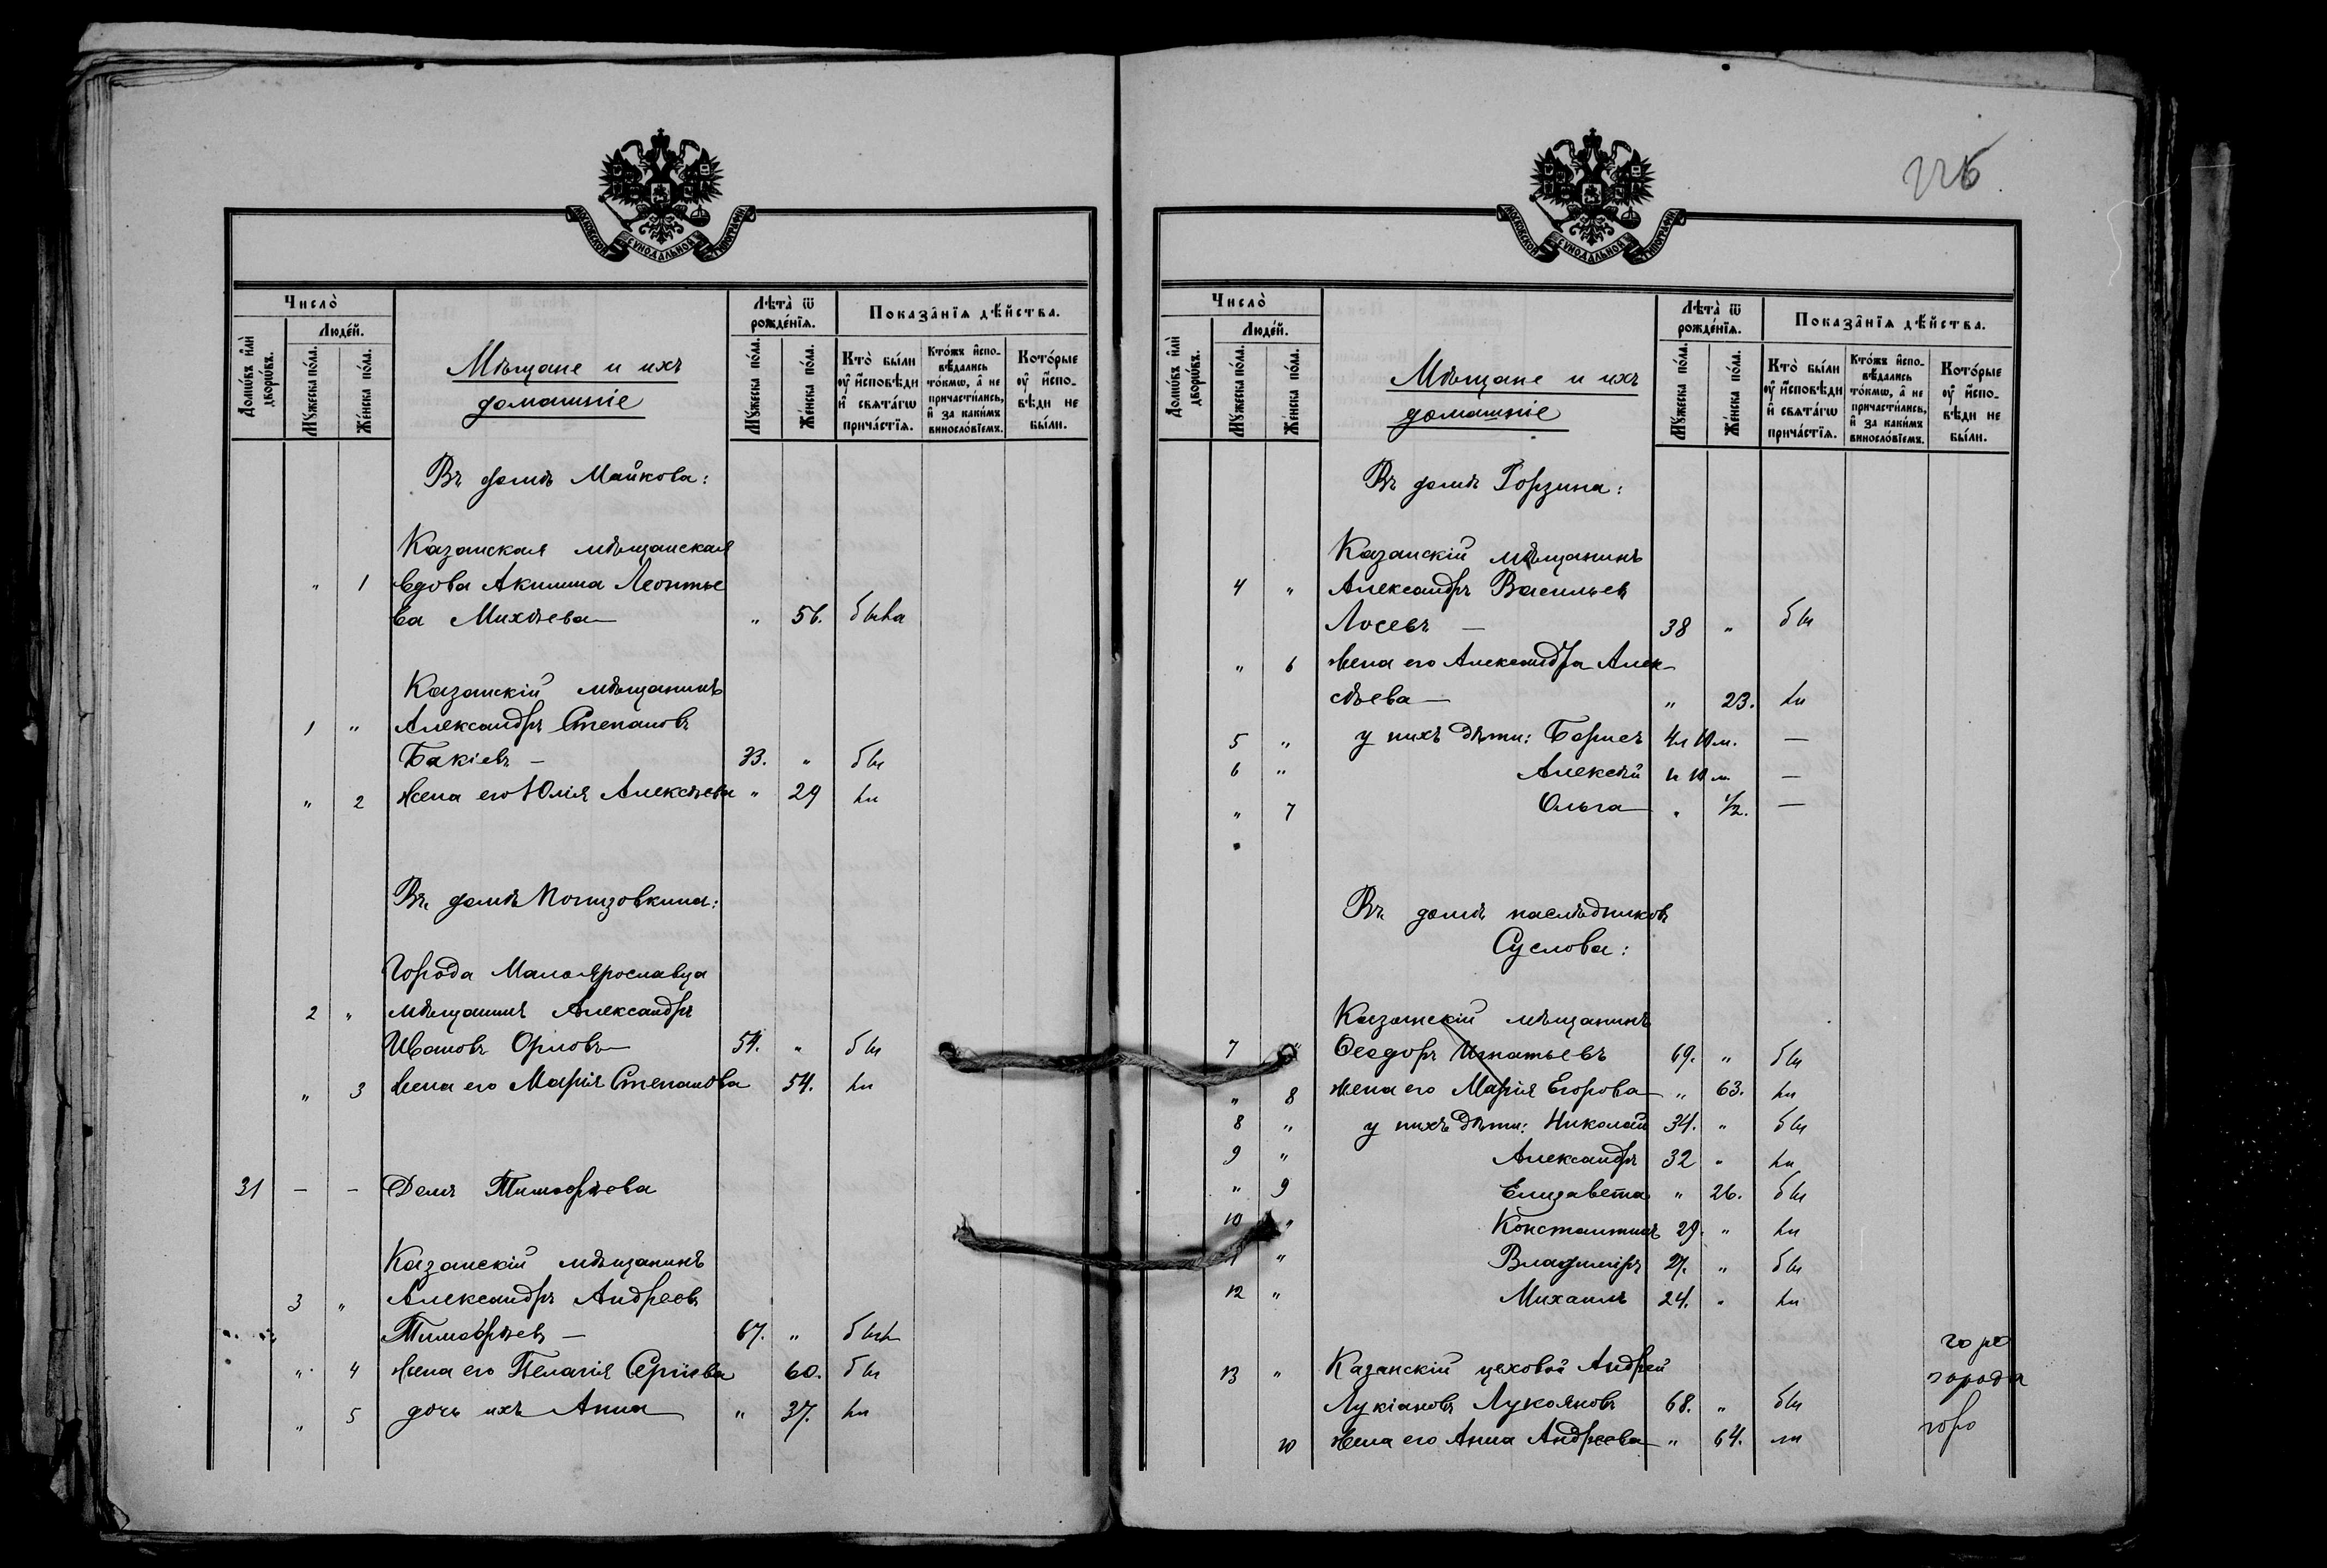 МОСКОВСКОЙ СѴНОДАЛЬНОЙ ТИПОГРАФІИ
Число̀
Людей.
Домѡвъ или дворѡвъ.
Мꙋжеска пола.
Женска пола.
Мѣщане и ихъ
домашніе
Лѣта ѿ рожденїѧ.
Мꙋжеска пола.
Женска пола.
Показанїѧ дѣйства.
Кто были оу исповѣди и свѧтагѡ причастїѧ.
Ктожъ исповѣдались токмѡ, а не причастились, и за какимъ винословїемъ.
Которые оу исповѣди не были.
Въ домѣ Майкова:
Казанская мѣщанская
" 1 вдова Акилина Леонтье
ва Михѣева — " 56. быва
Казанскій мѣщанинъ
1 " Александръ Степановъ
Бакіевъ — 33. " бы
" 2 жена его Юлія Алексѣева " 29 ли
Въ домѣ Понизовкина:
Города Малоярославца
2 " мѣщанинъ Александръ
Ивановъ Орловъ — 54. " бы
" 3 жена его Марія Степанова 54. ли
31 — — Домъ Тимофѣева
Казанскій мѣщанинъ
3 " Александръ Андреевъ
Тимофѣевъ — 67. " былъ
" 4 жена его Пелагія Сергіева 60. бы
" 5 дочь ихъ Анна " 37. ли
226
МОСКОВСКОЙ СѴНОДАЛЬНОЙ ТИПОГРАФІИ
Число̀
Людей.
Домѡвъ или дворѡвъ.
Мꙋжеска пола.
Женска пола.
Мѣщане и ихъ
домашніе
Лѣта ѿ рожденїѧ.
Мꙋжеска пола.
Женска пола.
Показанїѧ дѣйства.
Кто были оу исповѣди и свѧтагѡ причастїѧ.
Ктожъ исповѣдались токмѡ, а не причастились, и за какимъ винословїемъ.
Которые оу исповѣди не были.
Въ домѣ Горзина:
Казанскій мѣщанинъ
4 " Александръ Васильевъ
Лосевъ — 38 " бы
" 6 жена его Александра Алек
сѣева — " 23. ли
5 " у нихъ дѣти: Борисъ 4л 10 м. —
6 " Алексѣй 10 м. —
" 7 Ольга " 1/2. —
Въ домѣ наслѣдниковъ
Суслова:
Казанскій мѣщанинъ
7 " Ѳеодоръ Игнатьевъ 69. " бы
" 8 жена его Марія Егорова " 63. ли
8 " у нихъ дѣти: Николай 34. " бы
9 " Александръ 32 " ли
" 9 Елизавета " 26. бы
10 " Константинъ 29. " ли
11 " Владиміръ 27. " бы
12 " Михаилъ 24. " ли
горо
13 " Казанскій цеховой Андрей
города
Лукіановъ Лукояновъ 68. " бы
горо
10 жена его Анна Андреева " 64. ли